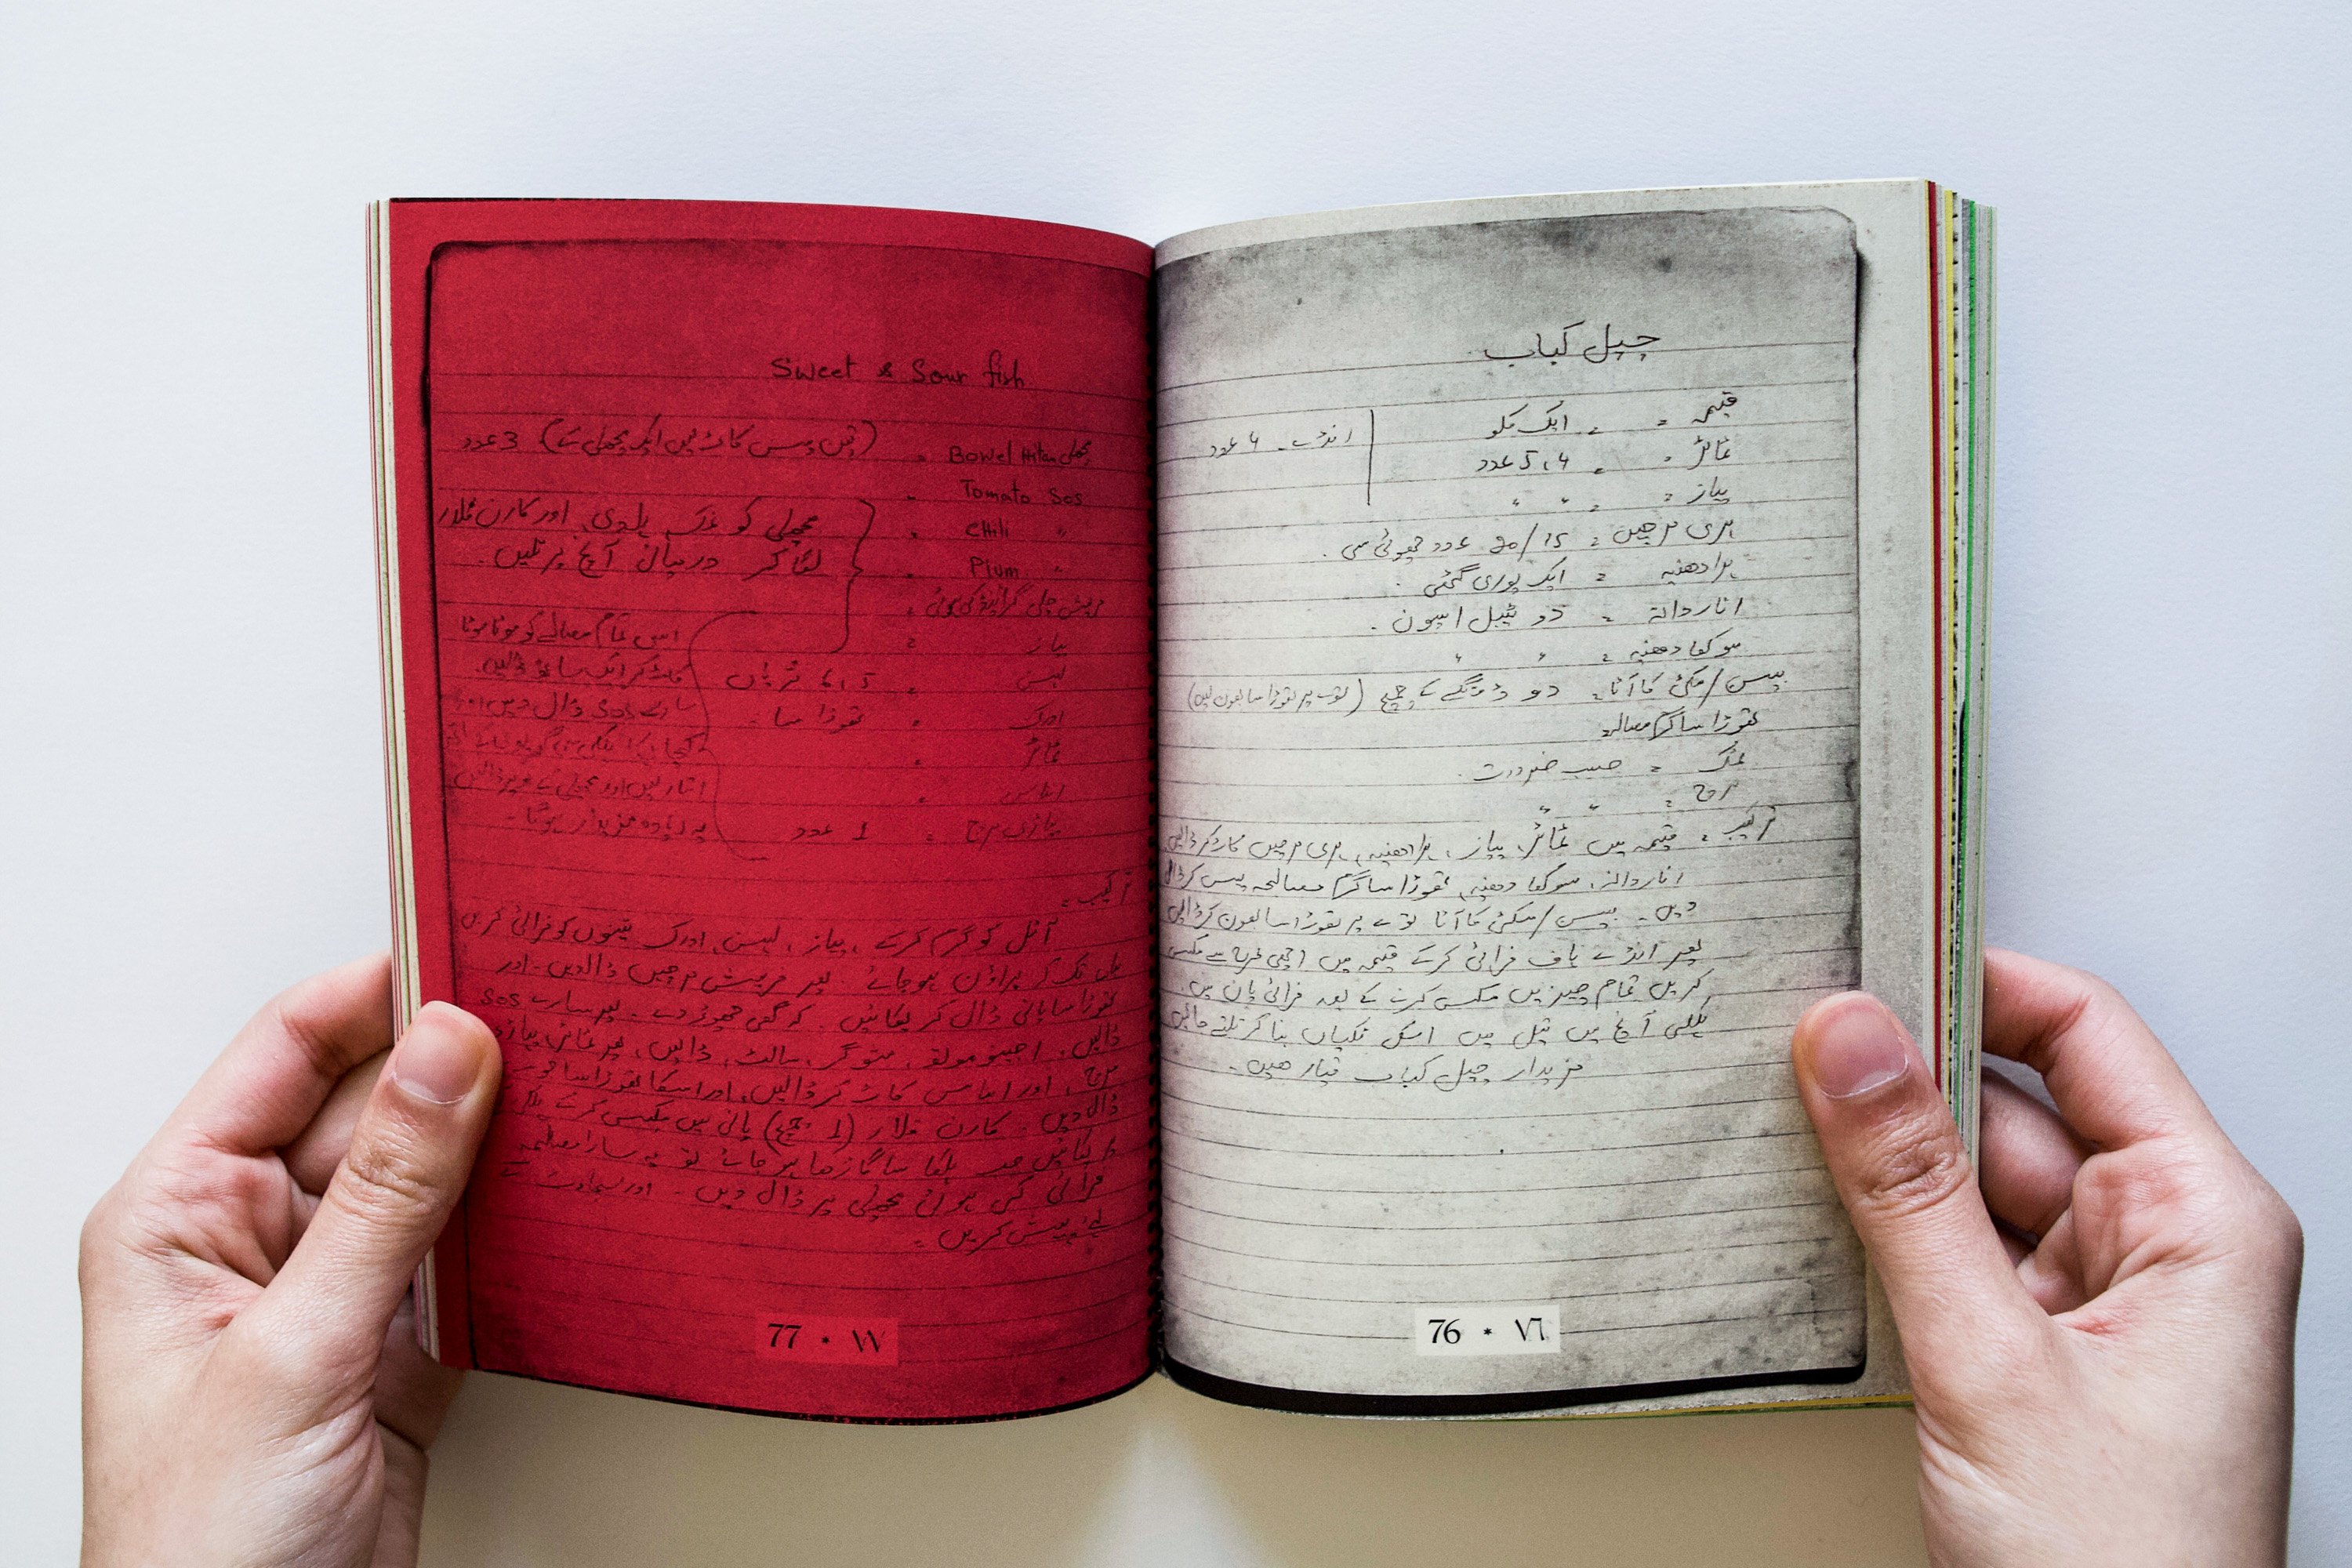 چپل کباب
قیمہ = = ایک کلو
انڈے - 4 عدد
ٹماٹر = = 4، 5 عدد
پیاز = = " "
ہری مرچیں = 15/20 عدد چھوٹی سی۔
ہرا دھنیہ = ایک پوری گٹھی۔
اناردانہ = دو ٹیبل اسپون۔
سوکھا دھنیہ = " "
بیسن/مکئی کا آٹا = دو کے چمچ (توے پر تھوڑا سا بھون لیں)
تھوڑا سا گرم مصالحہ
نمک = حسب ضرورت۔
مرچ = " "
ترکیب = قیمہ میں ٹماٹر، پیاز، ہرا دھنیہ، ہری مرچیں کاٹ کر ڈالیں
اناردانہ، سوکھا دھنیہ، تھوڑا سا گرم مصالحہ پیس کر ڈال
دیں۔ بیسن/مکئی کا آٹا توے پر تھوڑا سا بھون کر ڈالیں
پھر انڈے ہاف فرائی کرکے قیمہ میں اچھی طرح سے مکس
کریں تمام چیزیں مکس کرنے کے بعد فرائی پان میں۔
ہلکی آنچ میں تیل میں اسکی ٹکیاں بنا کر تلتے جائیں
مزیدار چپل کباب تیار ھیں۔
76 * ٧٦
Sweet & Sour fish
مچھلی = (تین پیس کاٹ لیں ایک مچھلی کے) 3 عدد
Tomato Sos =
CHili " =
Plum " =
مچھلی کو نمک ہلدی اور کارن فلار
لگا کر درمیان آنچ پر تلیں۔
فریش چلی گرائینڈ کی ہوئی =
پیاز =
لہسن = 5، 6 تریاں
ادرک = تھوڑا سا =
ٹماٹر =
اناناس =
پہاڑی مرچ = 1 عدد
اسی تمام مصالے کو موٹا موٹا
کاٹ کر ایک ساتھ ڈالیں۔
سارے sos ڈال دیں
اتار لیں اور مچھلی کے اوپر ڈالیں
یہ زیادہ مزیدار ہوگا۔
ترکیب =
آئل کو گرم کرکے، پیاز، لہسن، ادرک تینوں کو فرائی کریں
کہ براؤن ہو جائے۔ پھر فریش مرچیں ڈالدیں۔ اور
تھوڑا سا پانی ڈال کر پکائیں۔ کہ گھی چھوڑ دے۔ پھر سارے sos
ڈالیں۔ اجینو موتو، شوگر، سالٹ، ڈالیں، پھر ٹماٹر، پہاڑی
مرچ، اور اناناس کاٹ کر ڈالیں، اور اسکا تھوڑا سا
ڈال دیں۔ کارن فلار (1 چمچ) پانی میں مکس کرکے
پکائیں جب ہلکا سا گاڑھا ہو جائے تو یہ سارا مصالحہ
فرائی کی ہوئی مچھلی پر ڈال دیں۔ اور سجاوٹ کے
لئے پیش کریں۔
77 * ٧٧